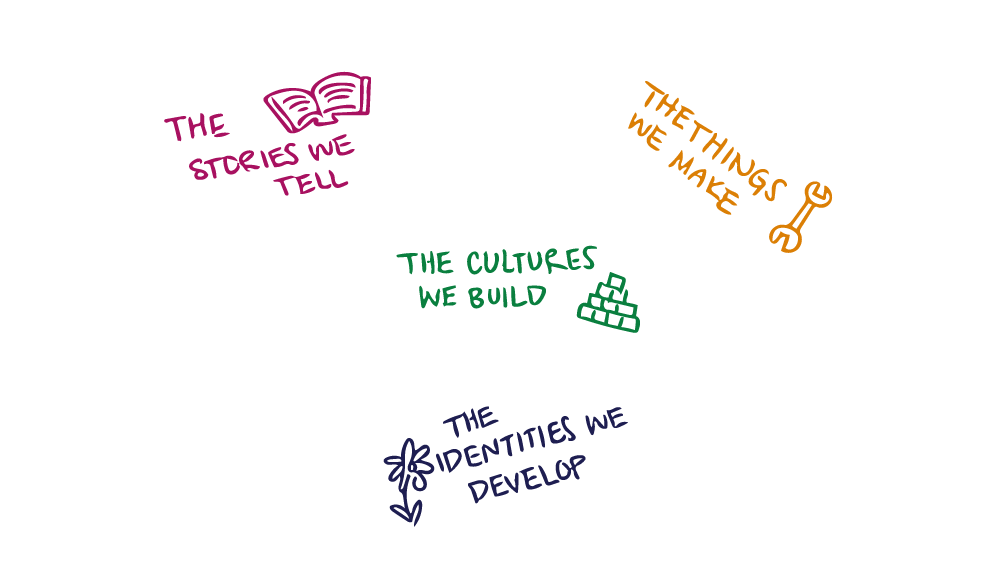 THE
STORIES WE
TELL
THE THINGS
WE MAKE
THE CULTURES
WE BUILD
THE
IDENTITIES WE
DEVELOP